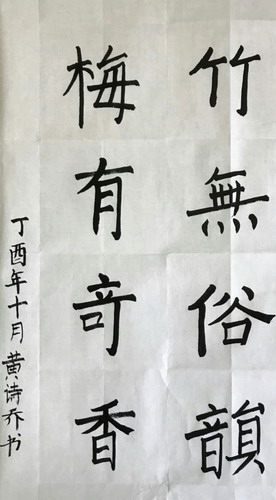 竹無俗韻
梅有奇香
丁酉年十月黄诗乔书